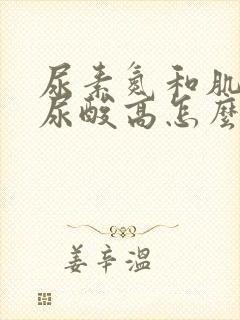 尿素氮和肌
尿酸高怎麼
姜辛溫